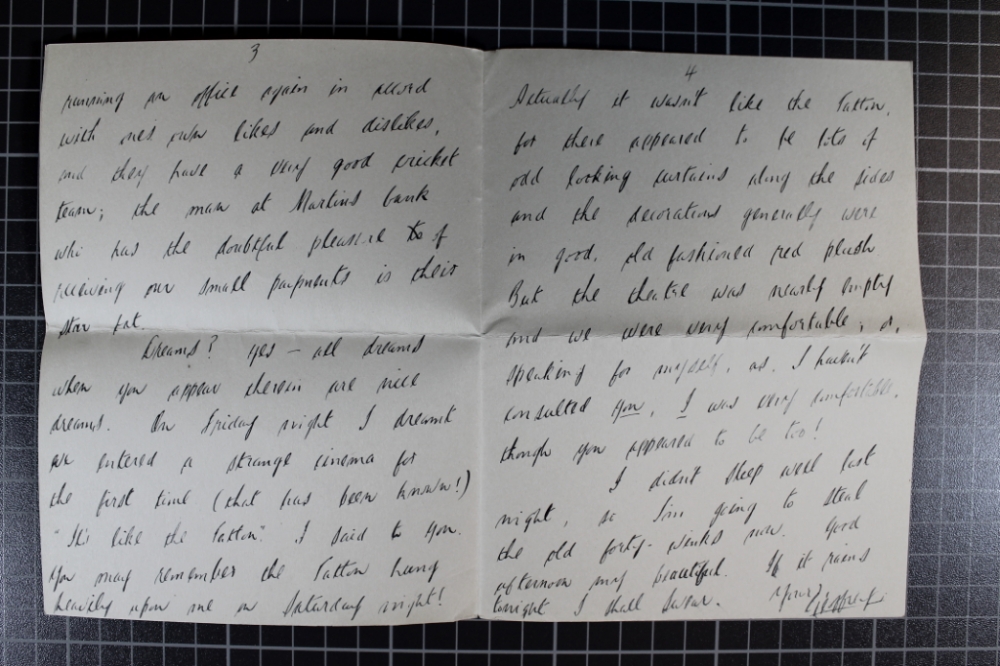 3
running an office again in accord
with one's own likes and dislikes,
and they have a very good cricket
team; the man at Martins bank
who has the doubtful pleasure to of
receiving our small payments is their
star bat.
Dreams? Yes – all dreams
when you appear therein are nice
dreams. On Friday night I dreamt
we entered a strange cinema for
the first time (that has been known!)
"It's like the Tatton." I said to you.
You may remember the Tatton hung
heavily upon me on Saturday night!
4
Actually it wasn't like the Tatton,
for there appeared to be lots of
odd looking curtains along the sides
and the decorations generally were
in good, old fashioned red plush
But the theatre was nearly empty
and we were very comfortable; or,
speaking for myself, as I haven't
consulted you, I was very comfortable,
though you appeared to be too!
I didn't sleep well last
night, so I'm going to steal
the old forty-winks now. Good
afternoon my beautiful. If it rains
tonight I shall swear. Yours
Geoffrey